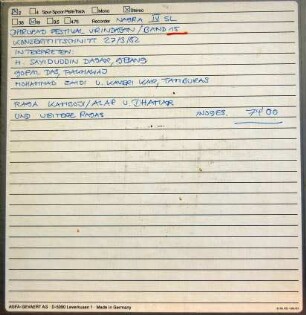 2 4 Spur/Spoor/Piste/Track Mono Stereo
38 19 9,5 4,75 Recorder NAGRA IV SL
DHRUPAD FESTIVAL VRINDABAN / BAND 15
KONZERTMITSCHNITT 27/3/82
INTERPRETEN:
H. SAYIDUDDIN DAGAR, GESANG
GOPAL DAS, PAKHAWAJ
MOHAMMAD ZAIDI U. KAVERI KAR, TAMBURAS
RAGA KAMBOJI / ALAP U. DHAMAR
UND WEITERE PADAS INSGES. 74'00
AGFA-GEVAERT AG · D-5090 Leverkusen 1 · Made in Germany